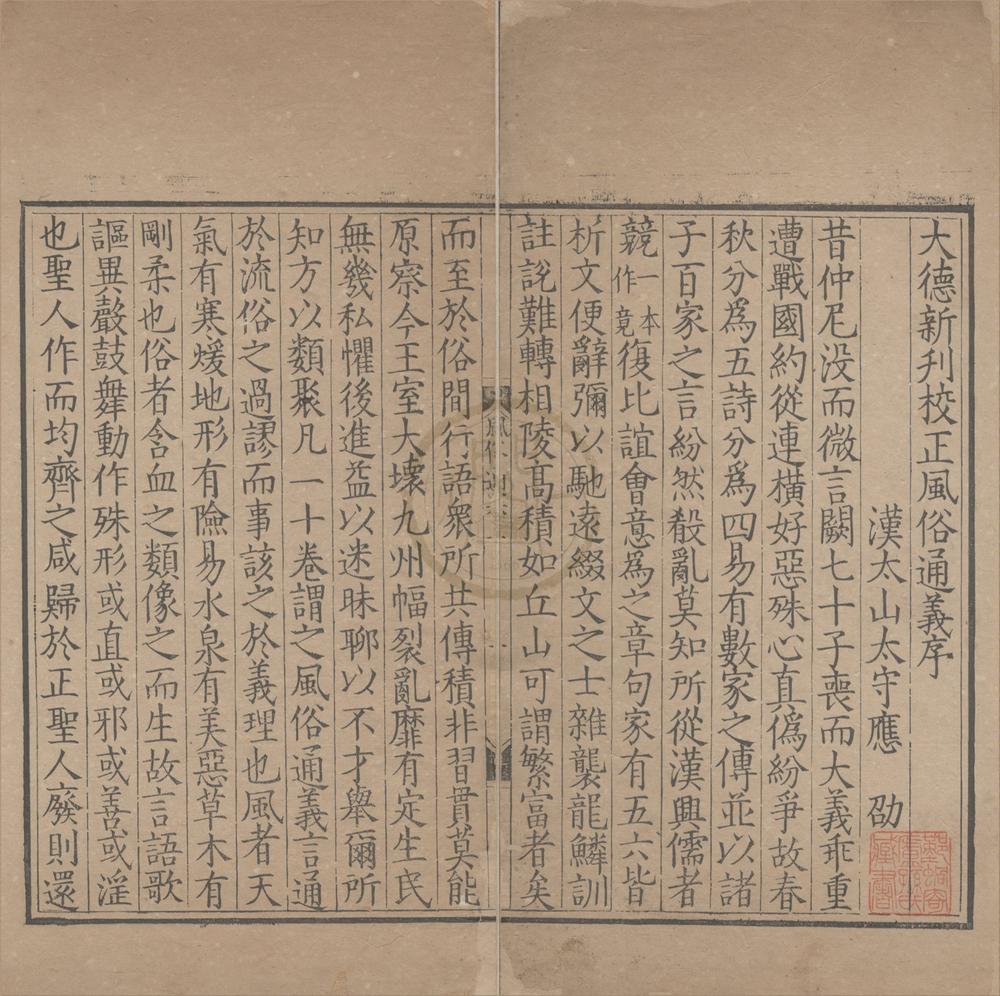 大德新刋校正風俗通義序
漢太山太守應　劭
昔仲尼没而微言闕七十子喪而大義乖重
遭戰國約從連橫好惡殊心真偽紛爭故春
秋分爲五詩分爲四易有數家之傳並以諸
子百家之言紛然殽亂莫知所從漢興儒者
競一本作竟復比誼會意爲之章句家有五六皆
析文便辭彌以馳遠綴文之士雜襲龍鱗訓
註説難轉相陵高積如丘山可謂繁富者矣
而至於俗間行語衆所共傳積非習貫莫能
原察今王室大壞九州幅裂亂靡有定生民
無幾私懼後進益以迷昧聊以不才舉爾所
知方以類聚凡一十卷謂之風俗通義言通
於流俗之過謬而事該之於義理也風者天
氣有寒煖地形有險易水泉有美惡草木有
剛柔也俗者含血之類像之而生故言語歌
謳異聲鼓舞動作殊形或直或邪或善或淫
也聖人作而均齊之咸歸於正聖人廢則還